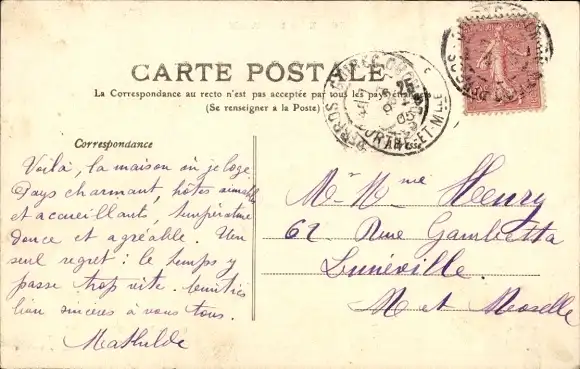 CARTE POSTALE
La Correspondance au recto n'est pas acceptée par tous les pays étrangers
(Se renseigner à la Poste)
Correspondance
Adresse
Voilà, la maison où je loge.
Pays charmant, hôtes aimables
et accueillants, température
douce et agréable. Un
seul regret : le temps y
passe trop vite. Amitiés
bien sincères à vous tous.
Mathilde
Mr Mme Henry
62 Rue Gambetta
Lunéville
M et Moselle
PERROS-GUIREC